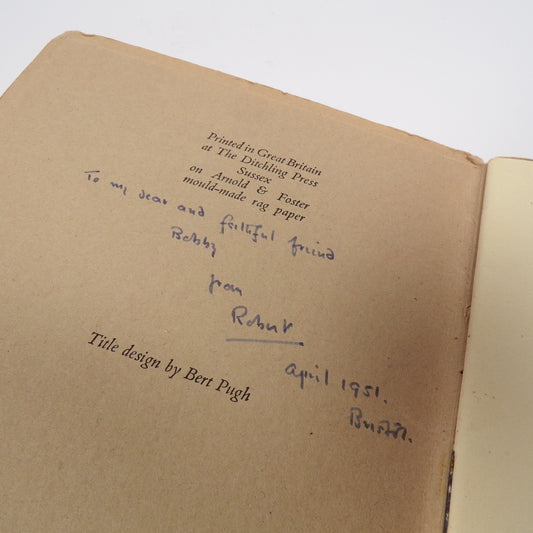 Printed in Great Britain
at The Ditchling Press
Sussex
on Arnold & Foster
mould-made rag paper
To my dear and faithful friend
Bobby
from
Robert
Title design by Bert Pugh
April 1951.
Bristol.